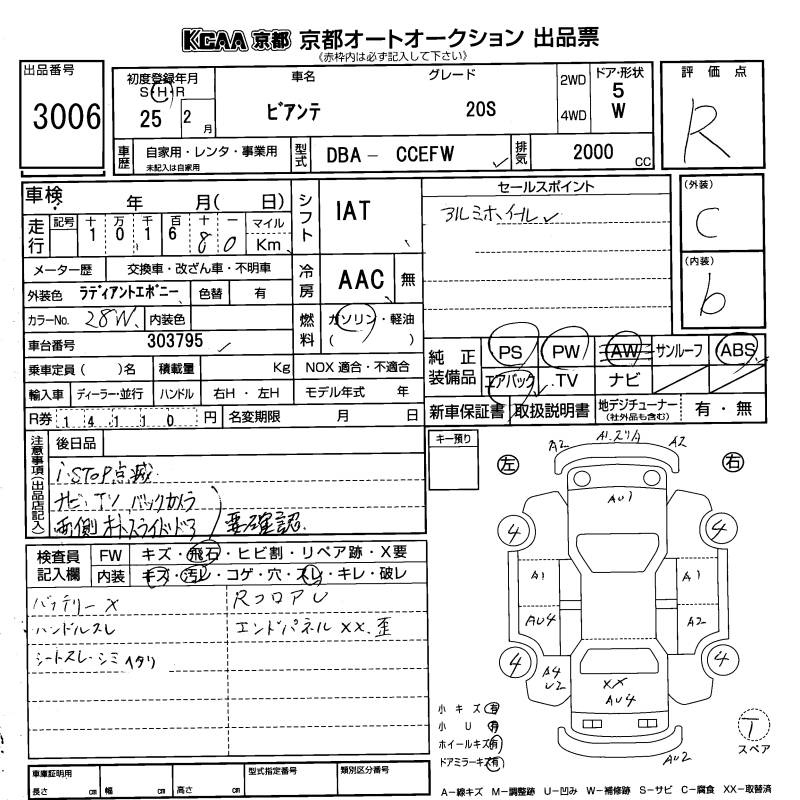 KCAA 京都 京都オートオークション 出品票
(赤枠内は必ず記入して下さい)
出品番号
3006
初度登録年月
S・H・R
25 2 月
車名
ビアンテ
グレード
20S
2WD
4WD
ドア・形状
5
W
評価点
R
車歴
自家用・レンタ・事業用
未記入は自家用
型式
DBA－ CCEFW
排気
2000 cc
車検 年 月( 日)
シフト
IAT
セールスポイント
アルミホイール
(外装)
C
走行
記号 十 万 千 百 十 一 マイル
1 0 1 6 8 0 Km
(内装)
b
メーター歴 交換車・改ざん車・不明車
冷房
AAC 無
外装色 ラディアントエボニー 色替 有
カラーNo. 28W 内装色
燃料
ガソリン・軽油
( )
車台番号 303795
純正装備品
PS PW AW サンルーフ ABS
エアバック TV ナビ
乗車定員( )名 積載量 Kg NOX 適合・不適合
輸入車 ディーラー・並行 ハンドル 右H・左H モデル年式 年
R券 14110 円 名変期限 月 日
新車保証書 取扱説明書 地デジチューナー(社外品も含む) 有・無
注意事項(出品店記入)
後日品
i-STOP点滅
ナビ・TV バックカメラ
両側オートスライドドア
要確認
キー預り
左
右
A2 A1.スリキ A2
AU1
4 4
A1 A1
AU4 A2
4 4
A4
U2
XX
AU4
AU2
検査員記入欄
FW キズ・飛石・ヒビ割・リペア跡・X要
内装 キズ・汚レ・コゲ・穴・スレ・キレ・破レ
バッテリーX RフロアU
ハンドルスレ エンドパネルXX.歪
シートスレ・シミ ヘタリ
小キズ 有
小U 有
ホイールキズ 有
ドアミラーキズ 有
T
スペア
車庫証明用
長さ cm 幅 cm 高さ cm
型式指定番号
類別区分番号
A－線キズ M－調整跡 U－凹み W－補修跡 S－サビ C－腐食 XX－取替済